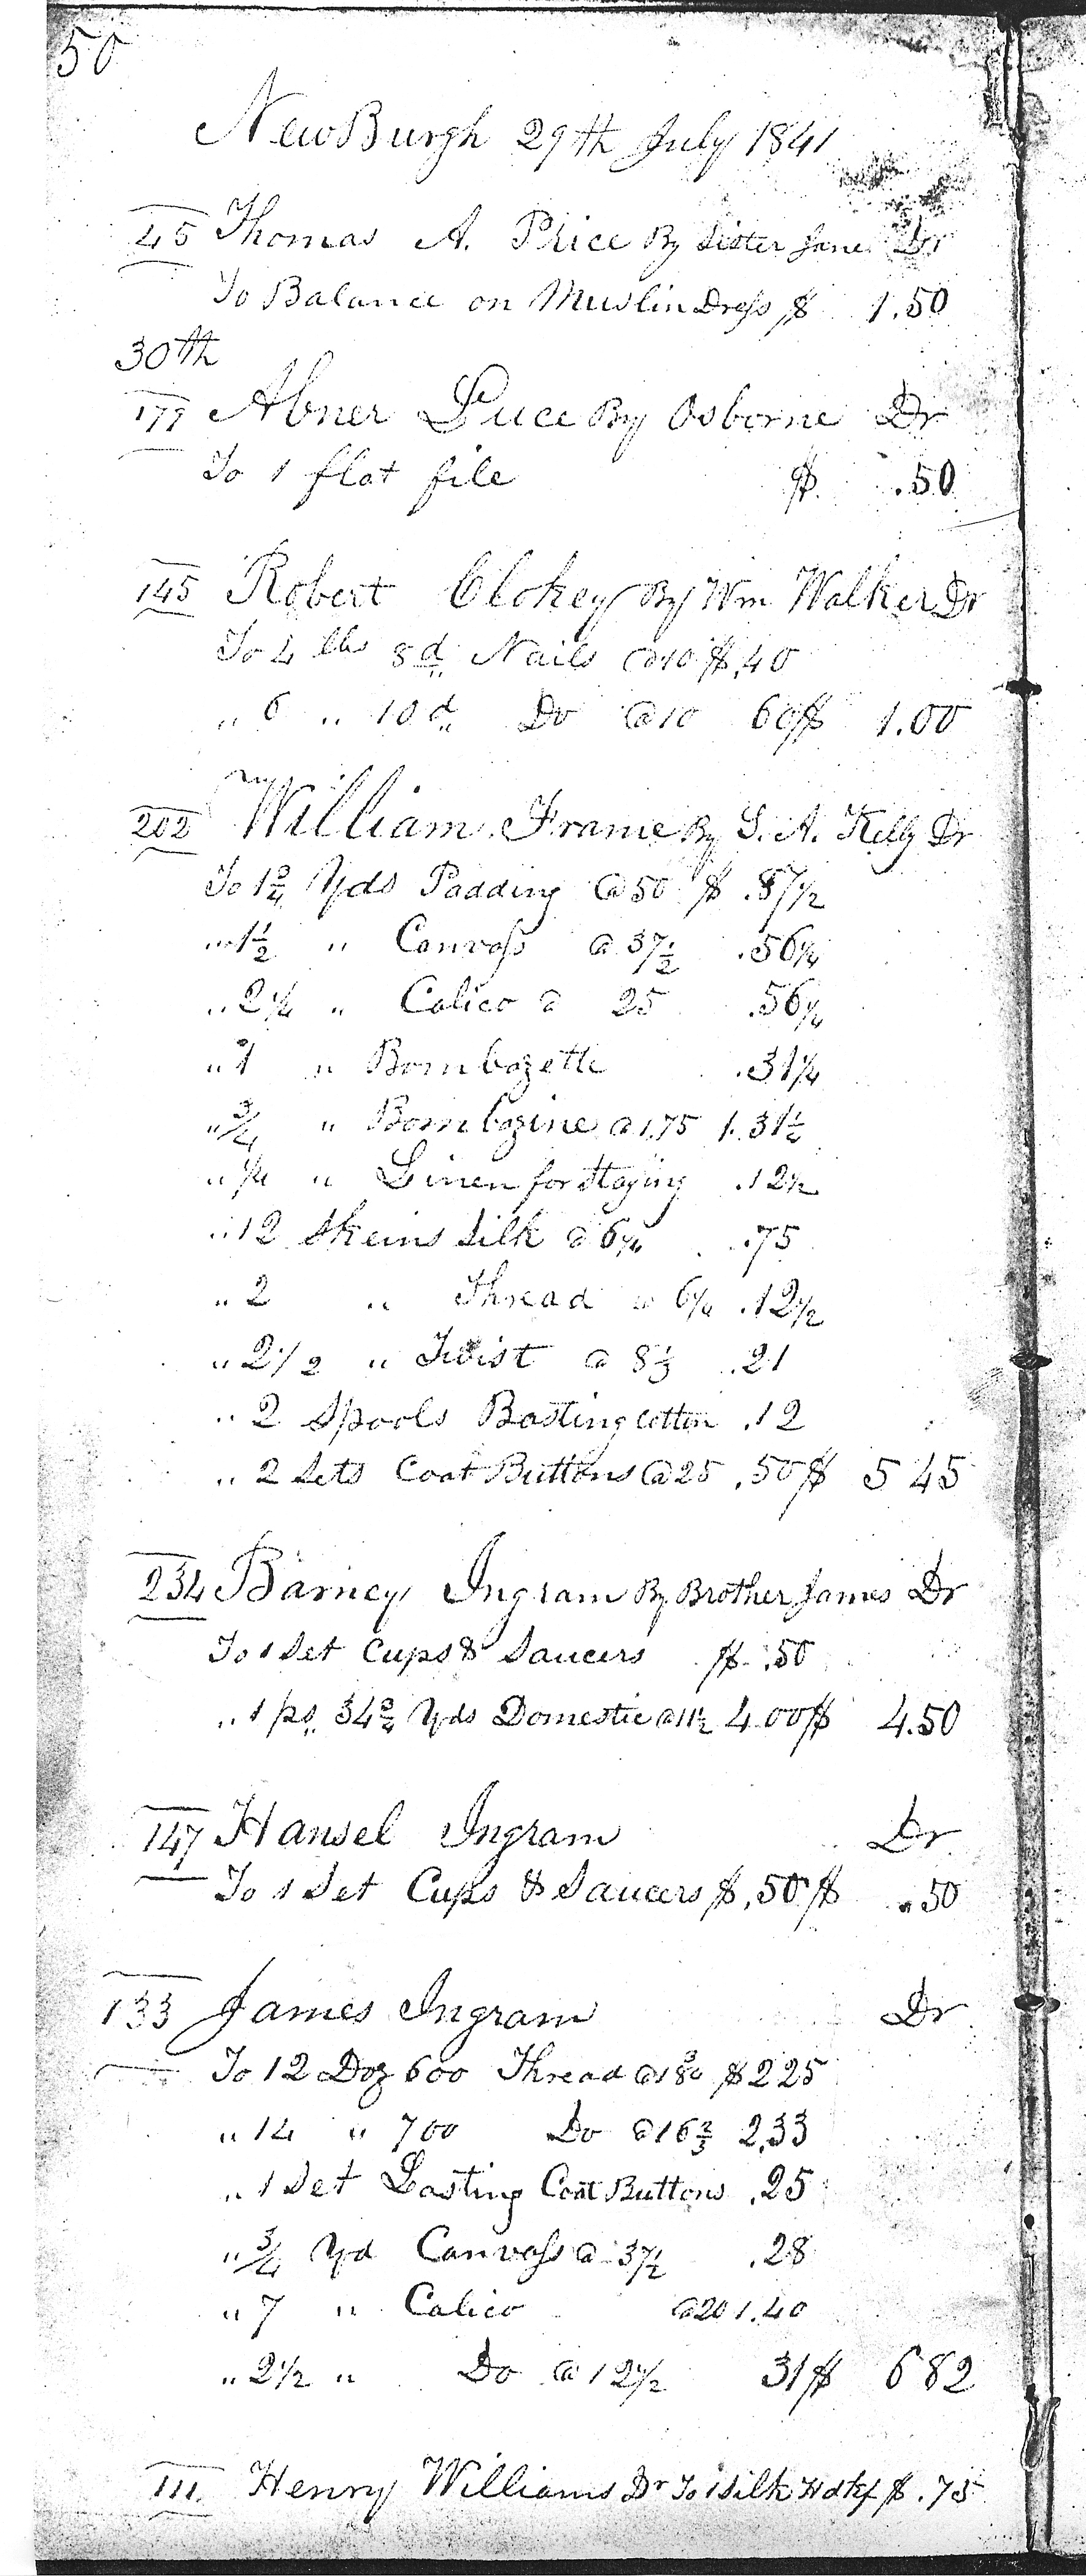 50
NewBurgh 29th July 1841
45 Thomas A. Price By Sister Jane Dr
To Balance on Muslin Dress $ 1.50
30th
179 Abner Luce By Osborne Dr
To 1 flat file $ .50
145 Robert Clokey By Wm Walker Dr
To 4 lbs 8d Nails @10 $.40
" 6 " 10d Do @10 60$ 1.00
202 William Frame By S. A. Kelly Dr
To 1¾ Yds Padding @50 $ .87½
" 1½ " Canvass @ 37½ .56¼
" 2¼ " Calico @ 25 .56¼
" 1 " Bombazette .31¼
" ¾ " Bombazine @1.75 1.31½
" ¼ " Linen for Staying .12½
" 12 Skeins Silk @ 6¼ .75
" 2 " Thread @ 6¼ .12½
" 2½ " Twist @ 8⅓ .21
" 2 Spools Basting cotton .12
" 2 Sets Coat Buttons @25 .50$ 5 45
234 Barney Ingram By Brother James Dr
To 1 Set Cups & Saucers $ .50
" 1 ps. 34¾ Yds Domestic @11½ 4.00$ 4.50
147 Hansel Ingram Dr
To 1 Set Cups & Saucers $.50 $ .50
133 James Ingram Dr
To 12 Doz 600 Thread @18¾ $2 25
" 14 " 700 Do @16⅔ 2.33
" 1 Set Lasting Coat Buttons .25
" ¾ Yd Canvass @ 37½ .28
" 7 " Calico @20 1.40
" 2½ " Do @ 12½ 31$ 6 82
111. Henry Williams Dr To 1 Silk Hdkf $ .75